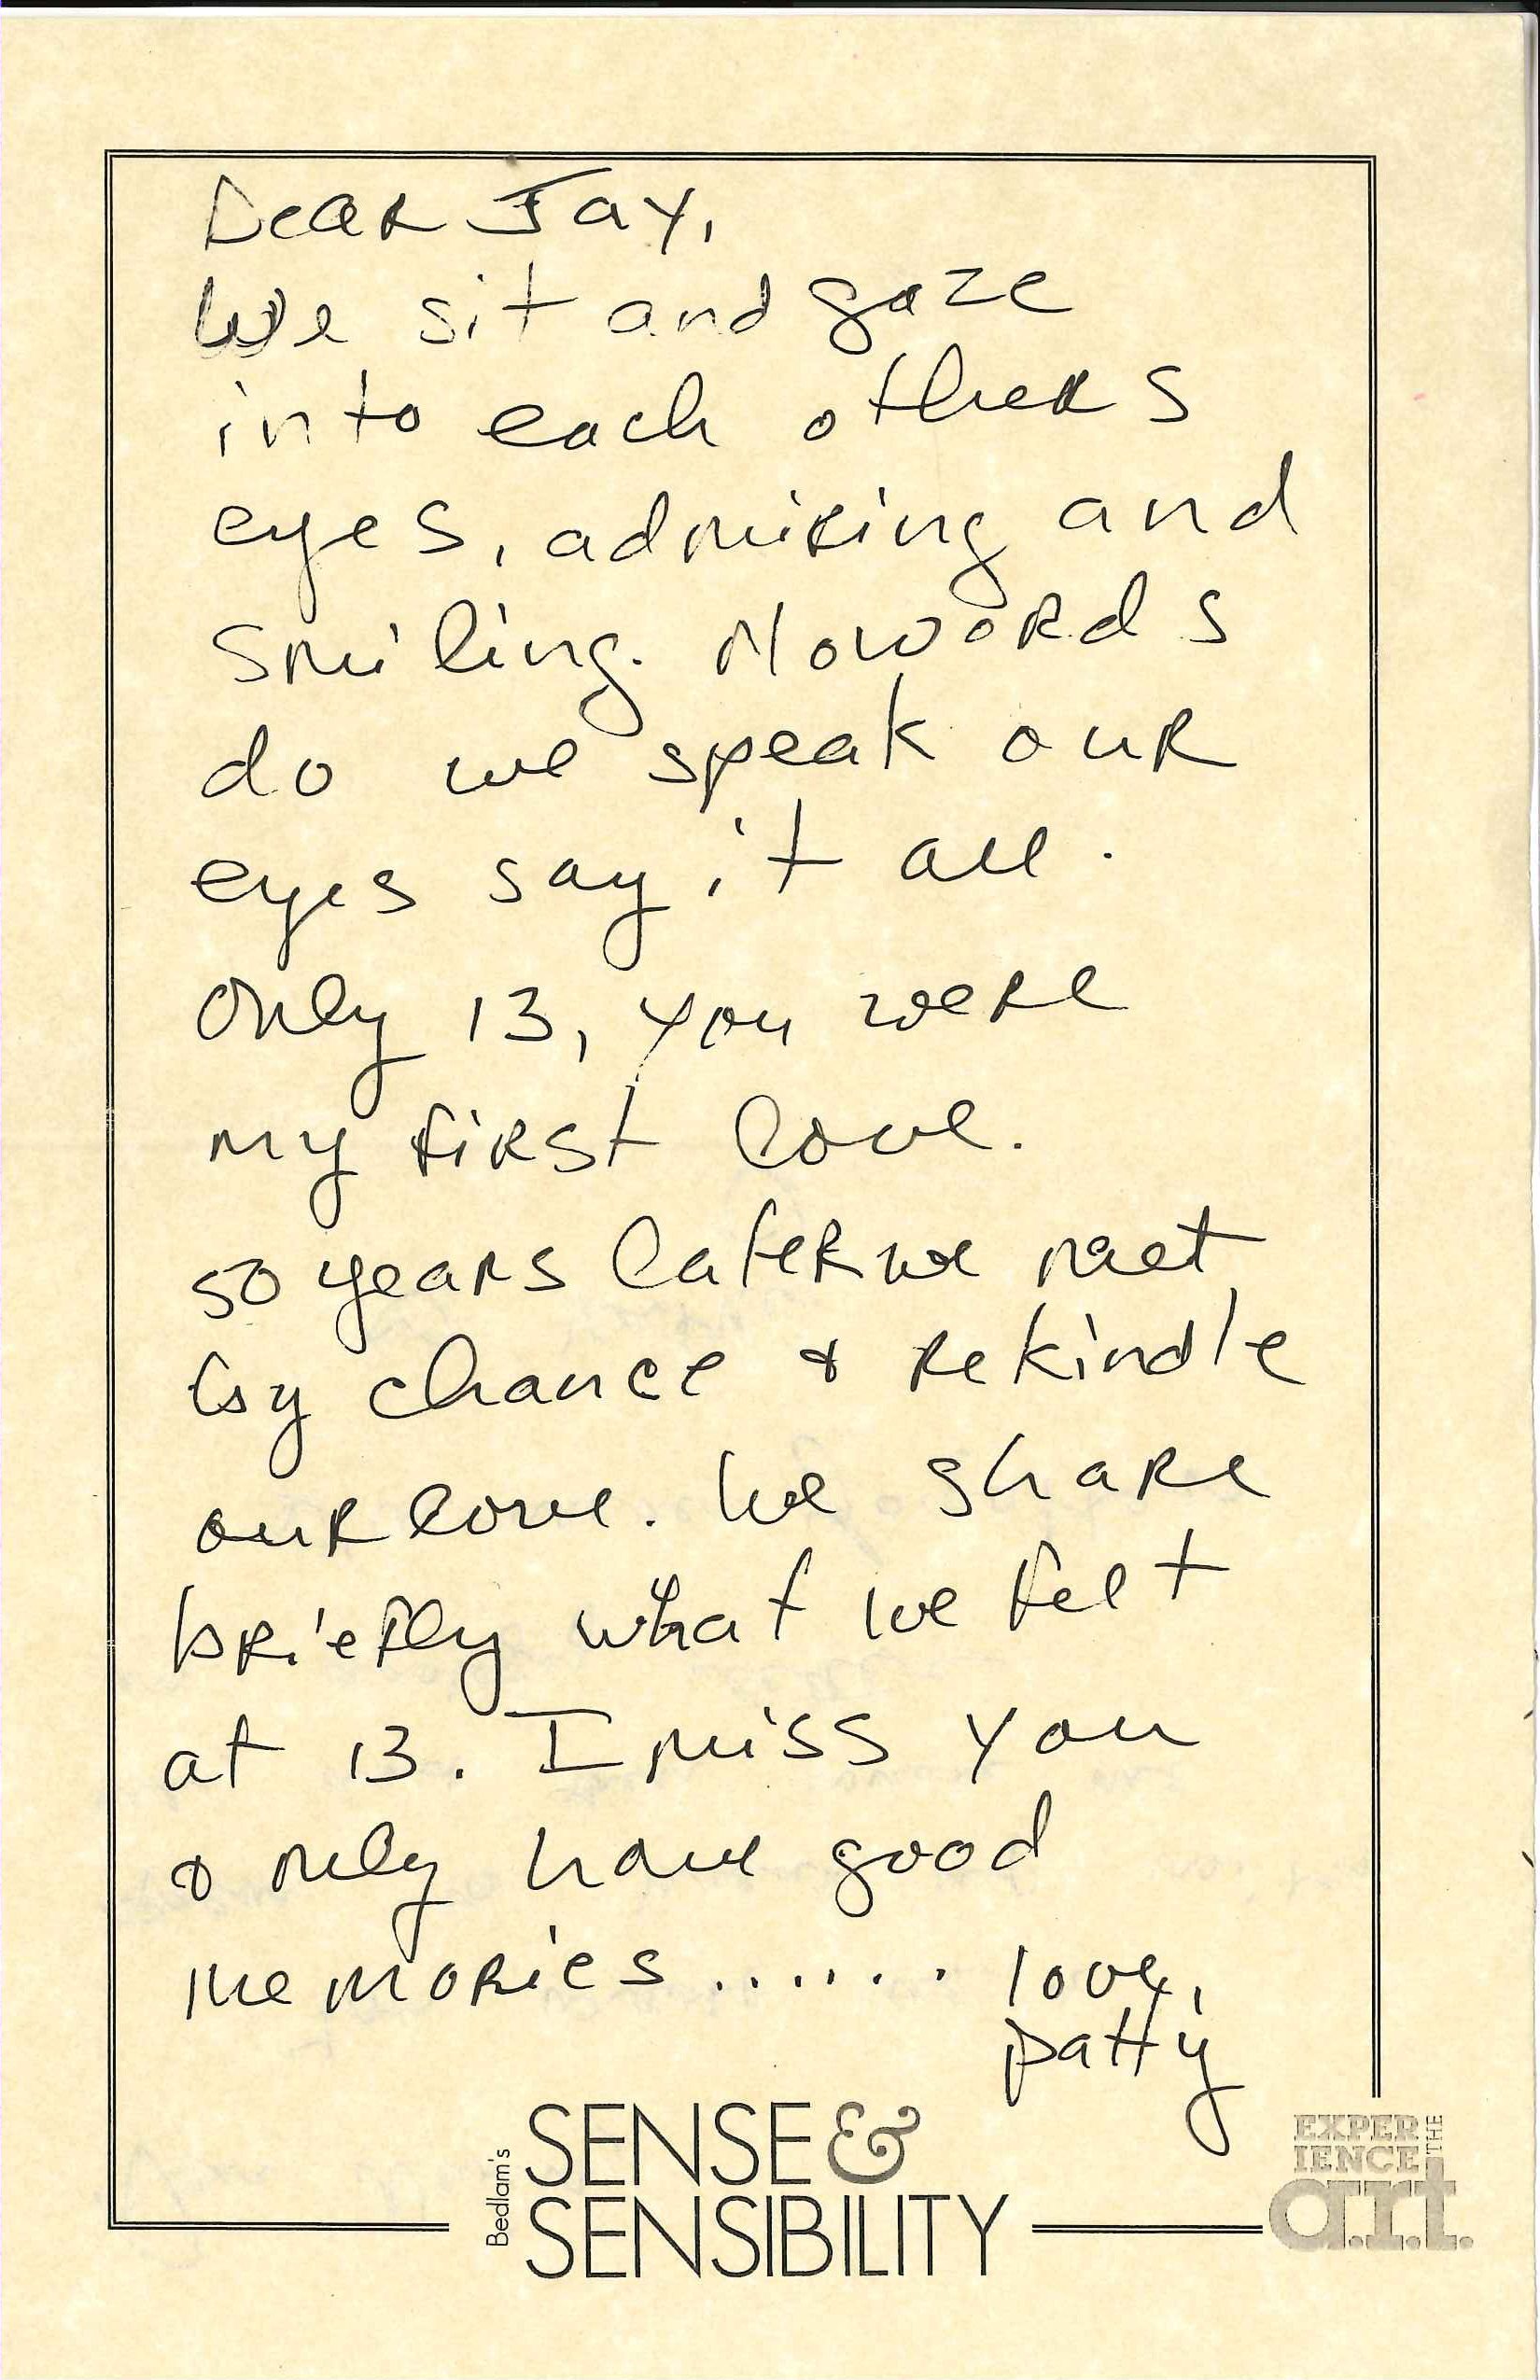 Dear Jay,
We sit and gaze
into each others
eyes, admiring and
smiling. No words
do we speak our
eyes say it all.
Only 13, you were
my first love.
50 years later we meet
by chance & rekindle
our love. We share
briefly what we felt
at 13. I miss you
& only have good
memories...... love,
patty
Bedlam's
SENSE &
SENSIBILITY
EXPER
IENCE THE
a.r.t.